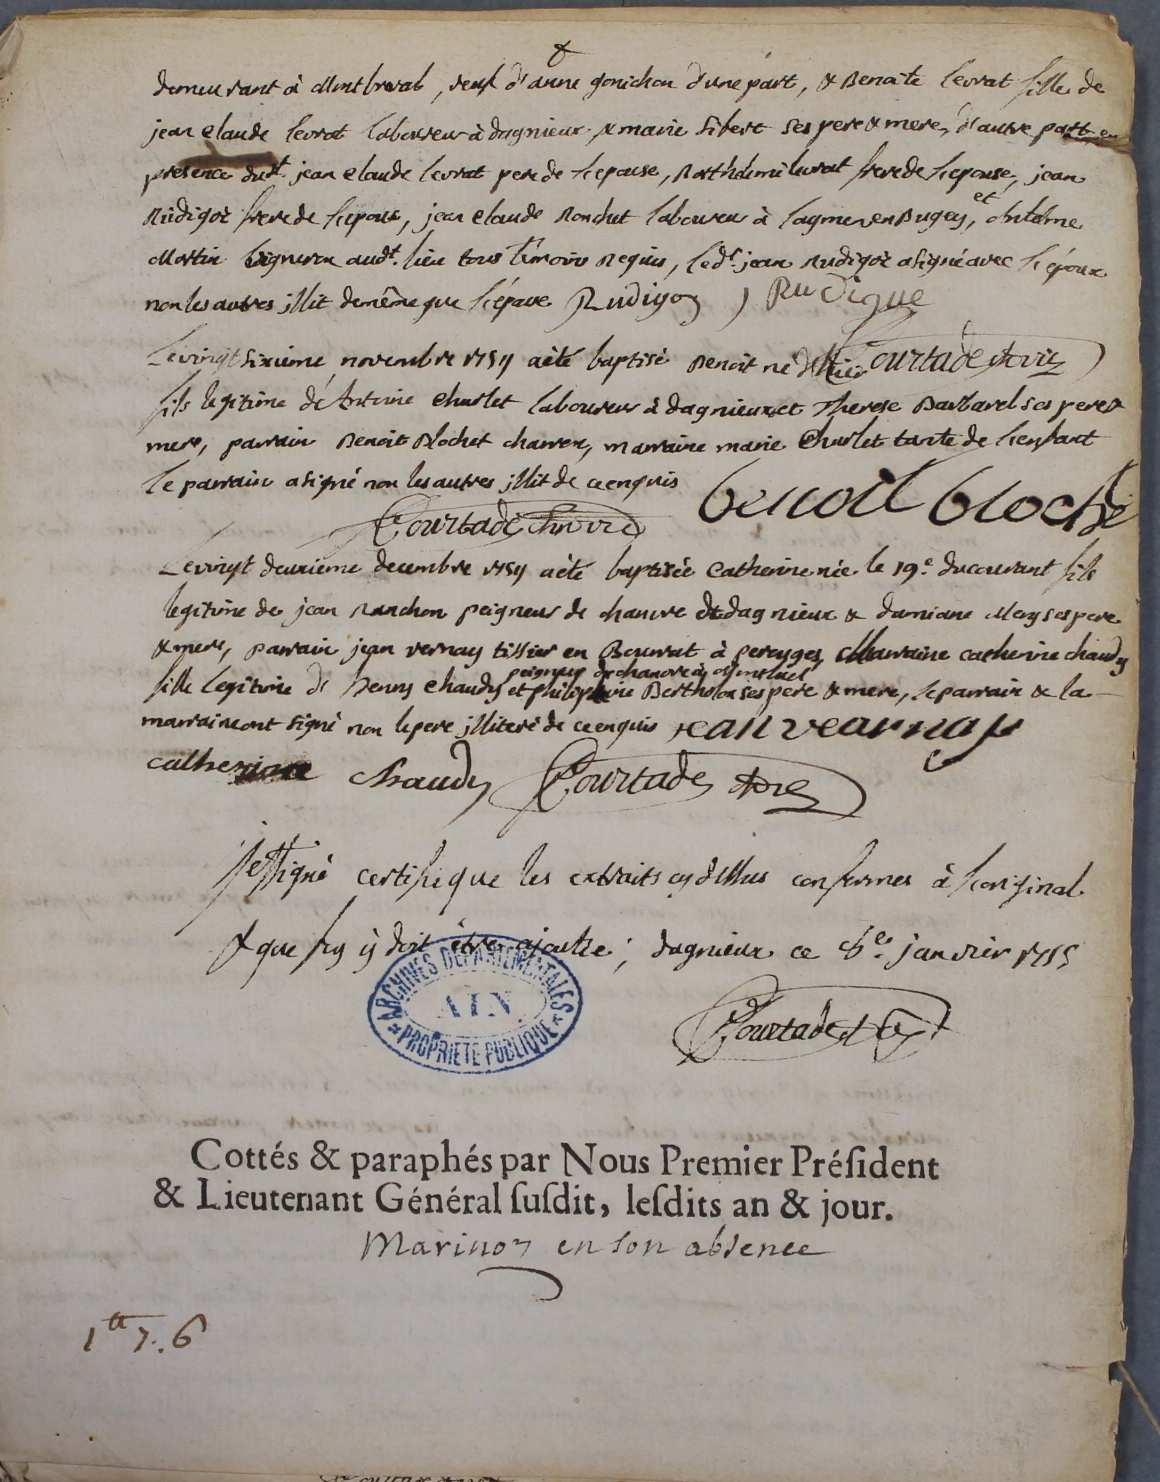 demeurant à Montluval, veuf d'anne gonichon d'une part, & Benoite levrat fille de
jean claude levrat laboureur à dagnieux & marie sibert ses pere & mere, d'autre part en
presence dudt. jean claude levrat pere de l'epouse, levrat frere de l'epouse, jean
Rudigoz frere de l'epoux, jean claude Ronchut laboureur à lagnieu en Bugey, et Antoine
Martin vigneron audt. lieu tous témoins requis, ledt. jean Rudigoz a signé avec l'époux
non les autres illit de même que l'épouse Rudigoz , Rudigue
Courtade vic
Le vingt sixième novembre 1754 a été baptisé Benoit né d'hier
fils legitime d'Antoine Charlet laboureur à dagnieux et Therese Barbarel ses pere &
mere, parrain Benoit Blochet charron, marraine marie Charlet tante de l'enfant
le parrain a signé non les autres illit de ce enquis benoit bloche
Courtade vic
Le vingt deuxième decembre 1754 a été baptisée Catherine née le 19e. du courant fille
legitime de jean Ranchon peigneur de chanvre de dagnieux & damiane Mery ses pere
& mere, parrain jean vernay tissier en à perouges, Marraine catherine chaudy
peigneur de chanvre à Montluel
fille legitime de henry chaudy et Bertholon ses pere & mere, le parrain & la
marraine ont signé non le pere illiteré de ce enquis jean vearnay
catherine chaudy Courtade
certifie que les extraits cy dessus conformes à l'original
& que foy y doit être ajoutée ; dagnieux ce janvier 1755
Courtade
ARCHIVES DÉPARTEMENTALES
AIN
PROPRIÉTÉ PUBLIQUE
Cottés & paraphés par Nous Premier Préſident
& Lieutenant Général ſuſdit, leſdits an & jour.
Marinon en son absence
1tt 7. 6